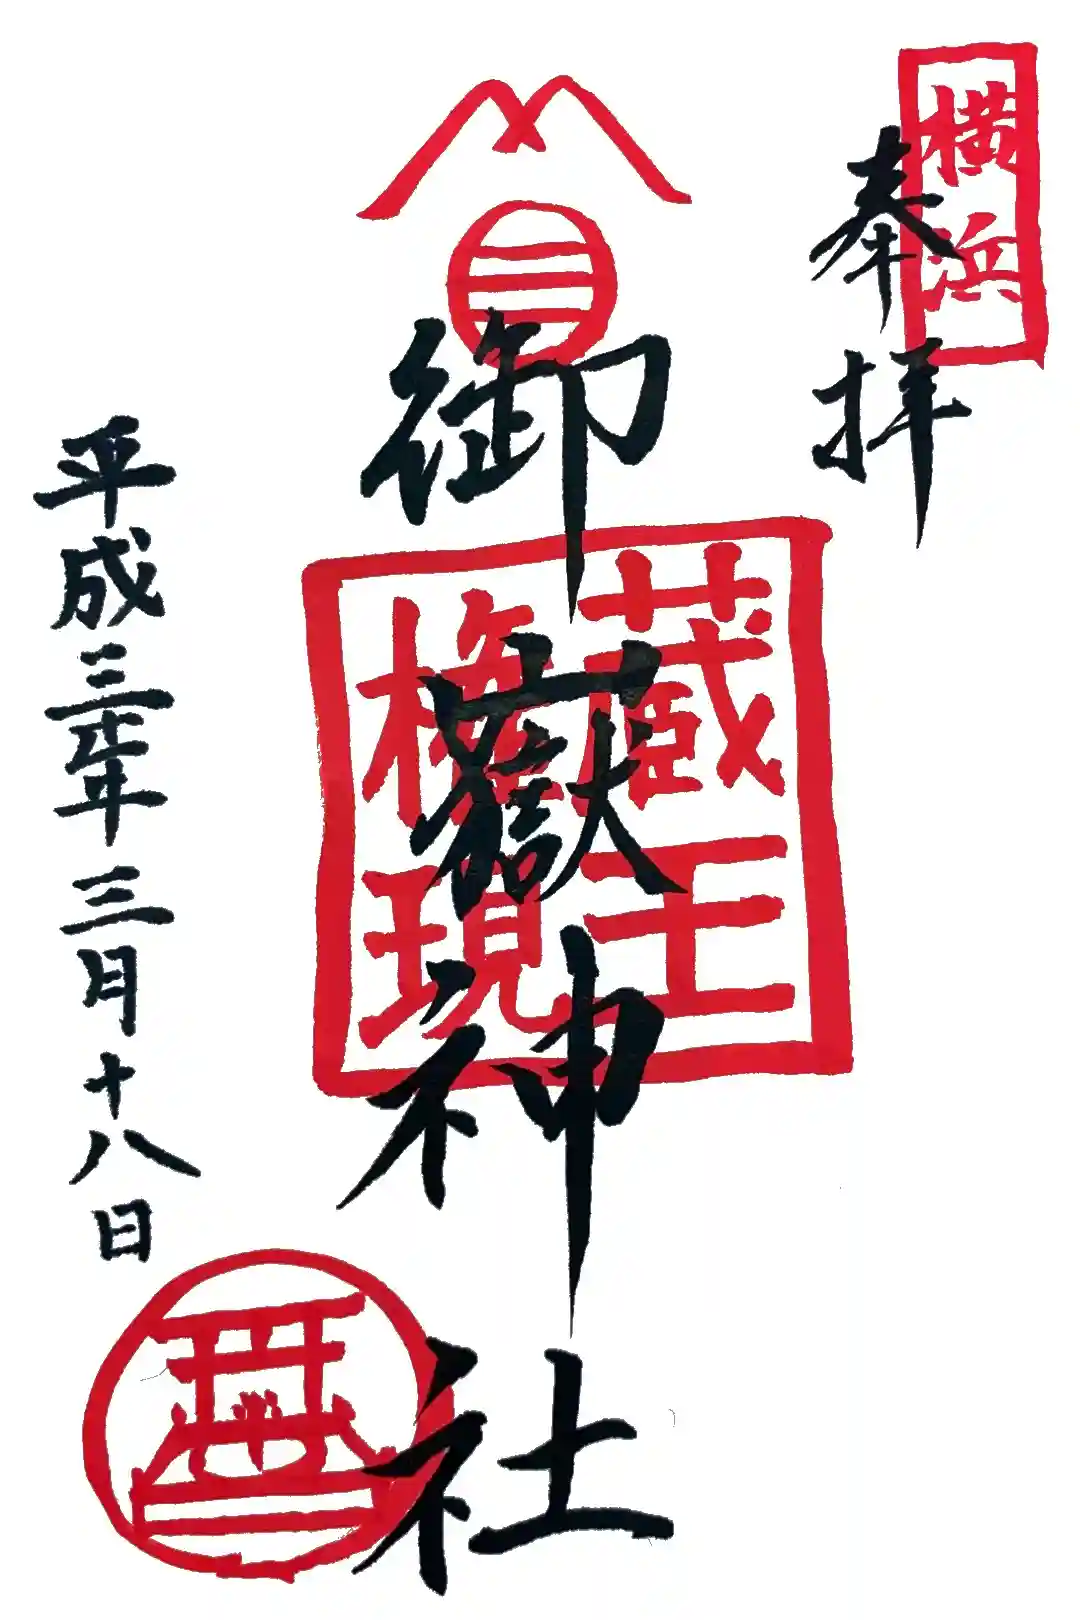 横浜
奉拝
御嶽神社
蔵王
権現
平成三十年三月十八日